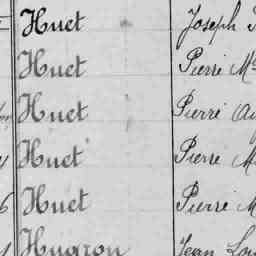 Huet Joseph
Huet Pierre M
Huet Pierre
Huet Pierre M
6 Huet Pierre M
Hugron Jean Lou